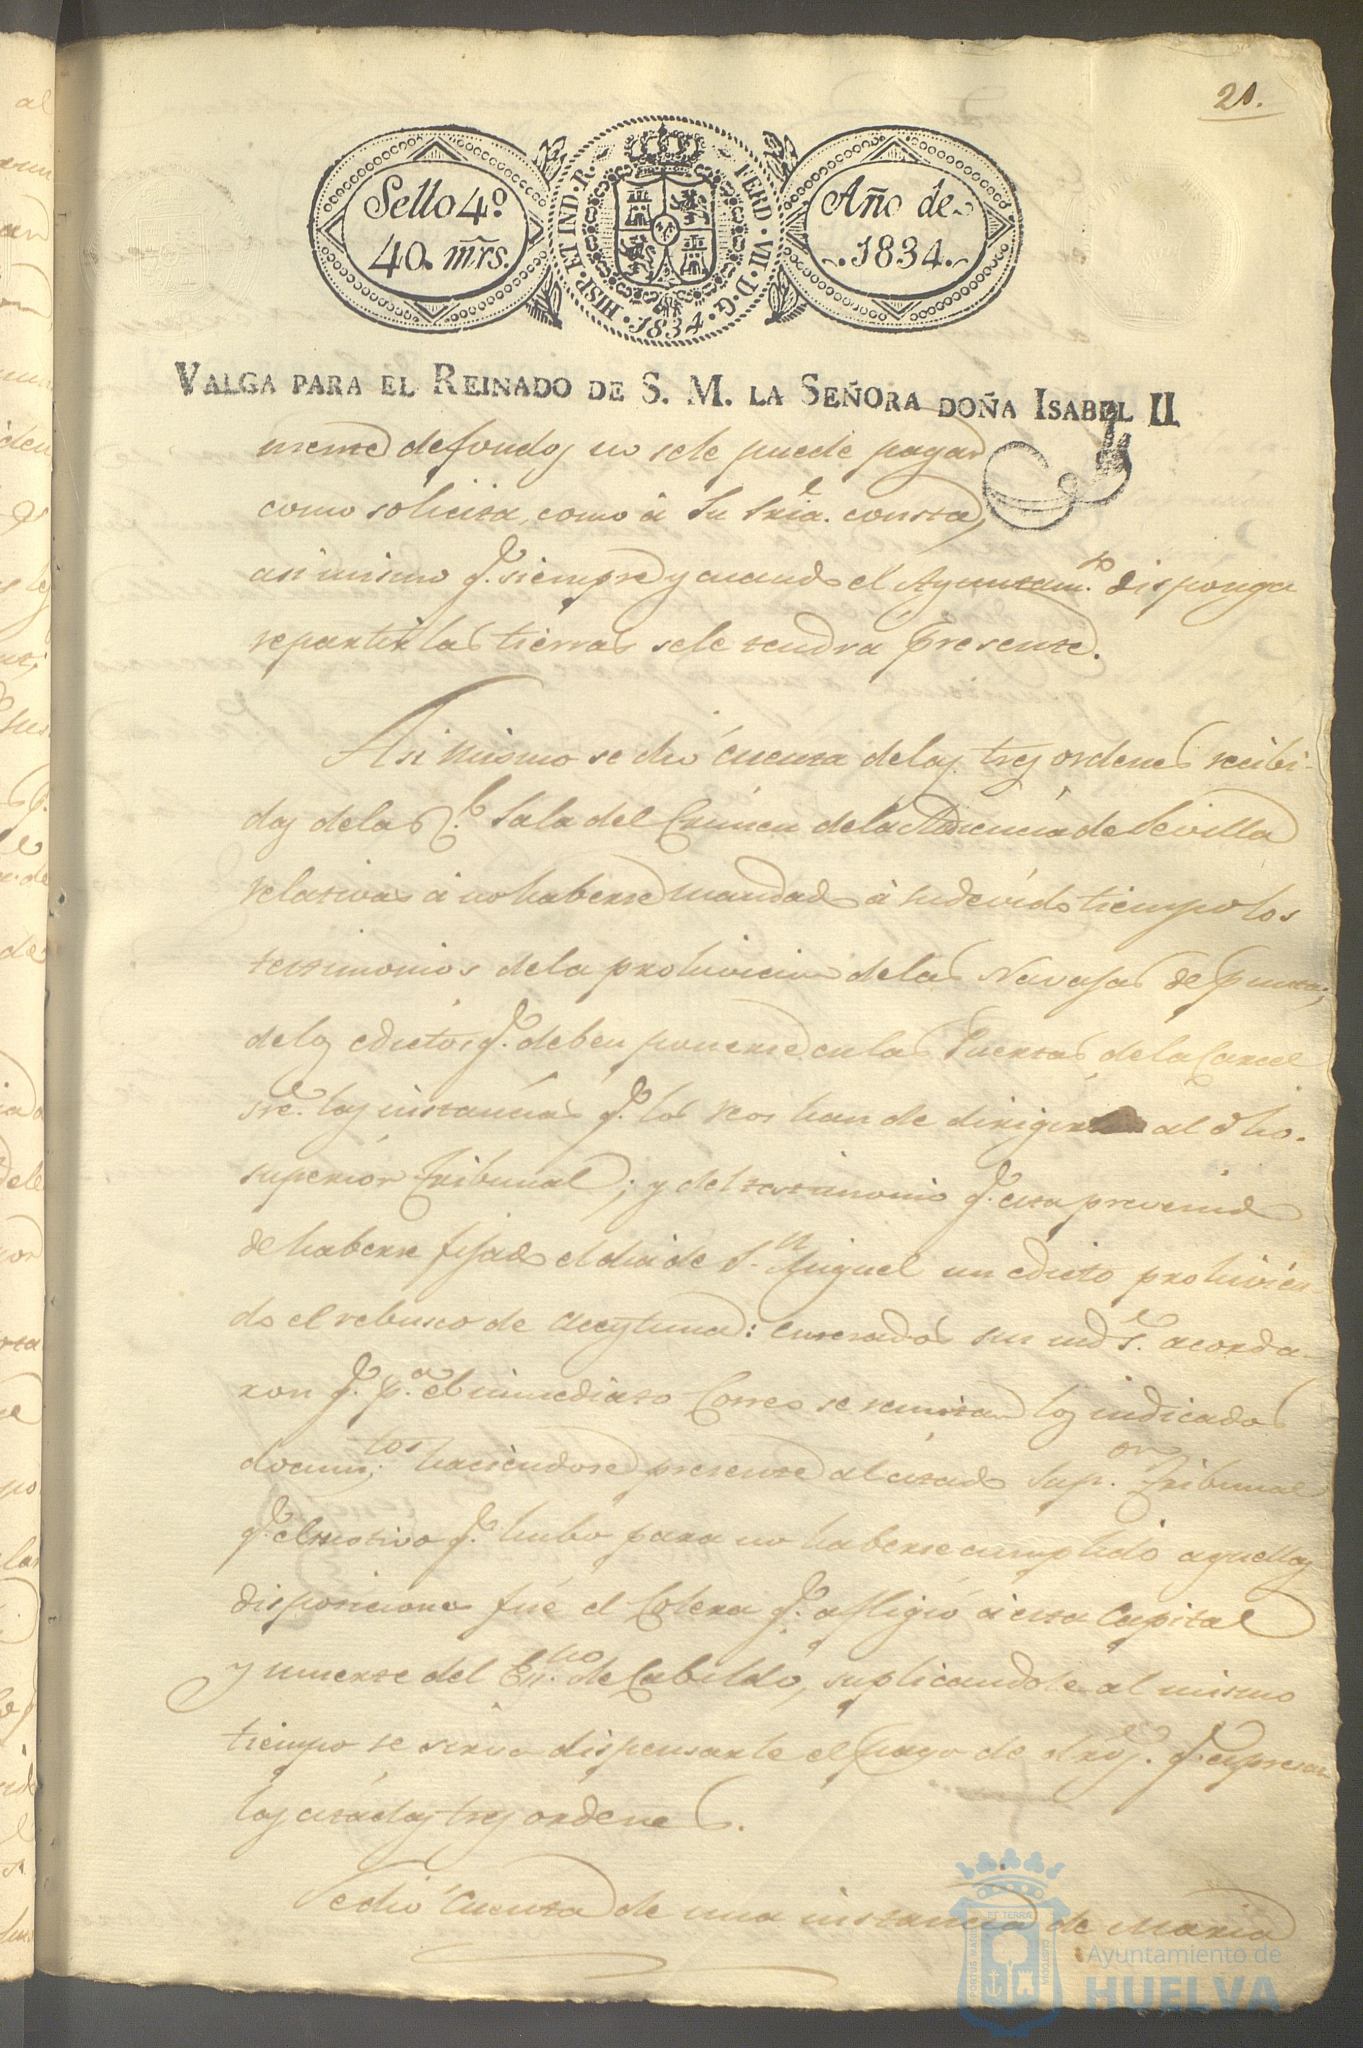 21.
Sello 4º
40. mrs.
HISP. ET IND. R. FERD. VII. D. G. 1834.
Año de
1834.
VALGA PARA EL REINADO DE S. M. LA SEÑORA DOÑA ISABEL II
mente de fondos no sele puede pagar
como solicita, como á Su Sria. consta,
asi mismo q.e siempre y cuando el Ayuntam.to disponga
repartir las tierras sele tendrá presente.
Asi mismo se dió cuenta delas tres ordenes recibi-
das dela R.l Sala del Crimen dela Audiencia de Sevilla
relativas á no haberse mandado á su devido tiempo los
testimonios dela prohivicion delas Navajas de punta;
delos edictos q.e deben ponerse en las Puertas dela Carcel
sre. las instancias q.e los reos han de dirigir al dho.
superior Tribunal; y del testimonio q.e esta prevenido
de haberse fijado el dia de S.n Miguel un edicto prohivien-
do el rebusco de Aceytuna: enterados sus mds. acorda-
ron q.e p.a el inmediato Correo se remitan los indicados
docum.tos haciendose presente al citado Sup.or Tribunal
q.e el motivo q.e hubo para no haberse cumplido aquellas
disposiciones fué el Colera q.e afligió á esta Capital
y muerte del Es.no de Cabildo, suplicandole al mismo
tiempo se sirva dispensarle el pago de q.e espresan
las citadas tres ordenes.
Se dió cuenta de una instancia de Maria
PORTUS MARIS ET TERRAE CUSTODIA
Ayuntamiento de
HUELVA